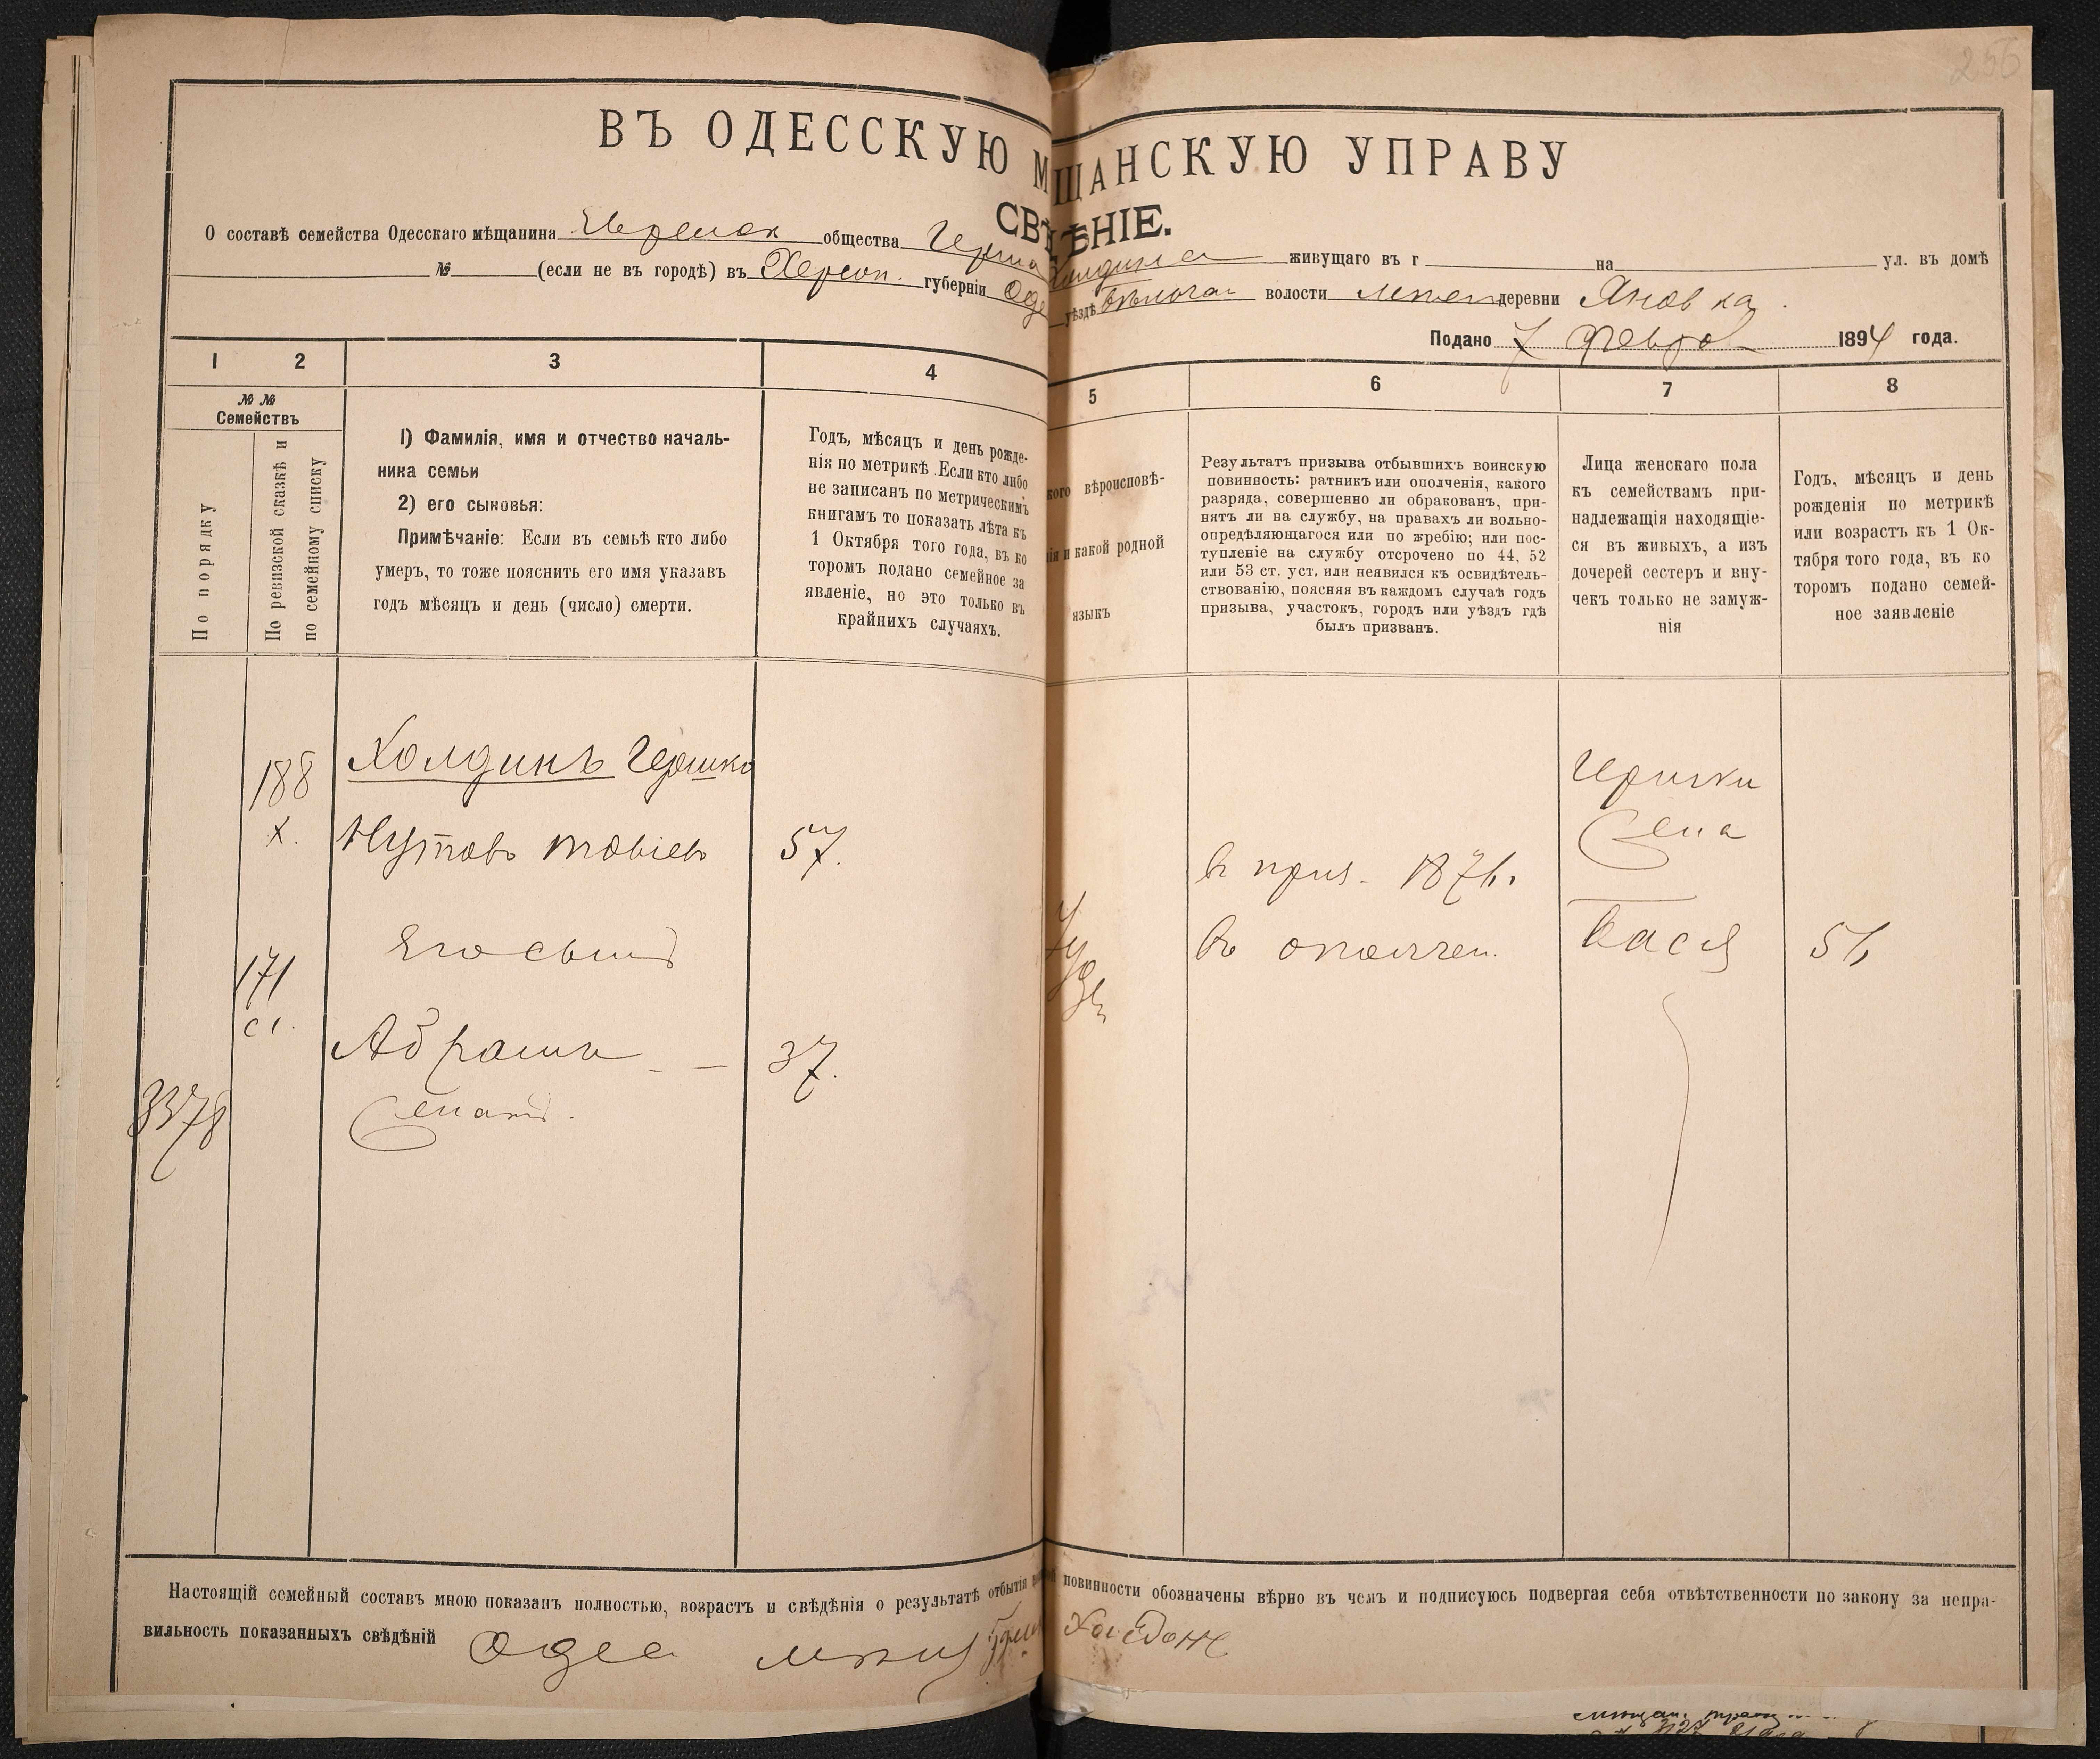 256
ВЪ ОДЕССКУЮ М ЩАНСКУЮ УПРАВУ
СВѢ ѢНІЕ.
О составѣ семейства Одесскаго мѣщанина Еврейск общества Герша Холдина живущаго въ г на ул. въ домѣ
№ (если не въ городѣ) въ Херсон. губерніи Оде уѣздѣ волости деревни Яновка.
Подано 7 Февра 1894 года.
1 2 3 4 5 6 7 8
№ №
Семействъ
По порядку
По ревизской сказкѣ и
по семейному списку
1) Фамилія, имя и отчество началь-
ника семьи
2) его сыновья:
Примѣчаніе: Если въ семьѣ кто либо
умеръ, то тоже пояснить его имя указавъ
годъ мѣсяцъ и день (число) смерти.
Годъ, мѣсяцъ и день рожде-
нія по метрикѣ. Если кто либо
не записанъ по метрическимъ
книгамъ то показать лѣта къ
1 Октября того года, въ ко
торомъ подано семейное за
явленіе, но это только въ
крайнихъ случаяхъ.
кого вѣроисповѣ-
нія и какой родной
языкъ
Результатъ призыва отбывшихъ воинскую
повинность: ратникъ или ополченія, какого
разряда, совершенно ли обракованъ, при-
нятъ ли на службу, на правахъ ли вольно-
опредѣляющагося или по жребію; или пос-
тупленіе на службу отсрочено по 44, 52
или 53 ст. уст. или неявился къ освидѣтель-
ствованію, поясняя въ каждомъ случаѣ годъ
призыва, участокъ, городъ или уѣздъ гдѣ
былъ призванъ.
Лица женскаго пола
къ семействамъ при-
надлежащія находящіе-
ся въ живыхъ, а изъ
дочерей сестеръ и вну-
чекъ только не замуж-
нія
Годъ, мѣсяцъ и день
рожденія по метрикѣ
или возрастъ къ 1 Ок-
тября того года, въ ко
торомъ подано семей-
ное заявленіе
188 Холдинъ Гершко
х. Нутовъ 57.
Его сынъ
171
Абрамъ 37.
3378 Женатъ.
Іуде
в приз. 1876.
въ ополчен.
Гершки
Жена
Бася 56
Настоящій семейный составъ мною показанъ полностью, возрастъ и свѣдѣнія о результатѣ отбытія повинности обозначены вѣрно въ чемъ и подписуюсь подвергая себя отвѣтственности по закону за непра-
вильность показанныхъ свѣдѣній Одес мѣщ